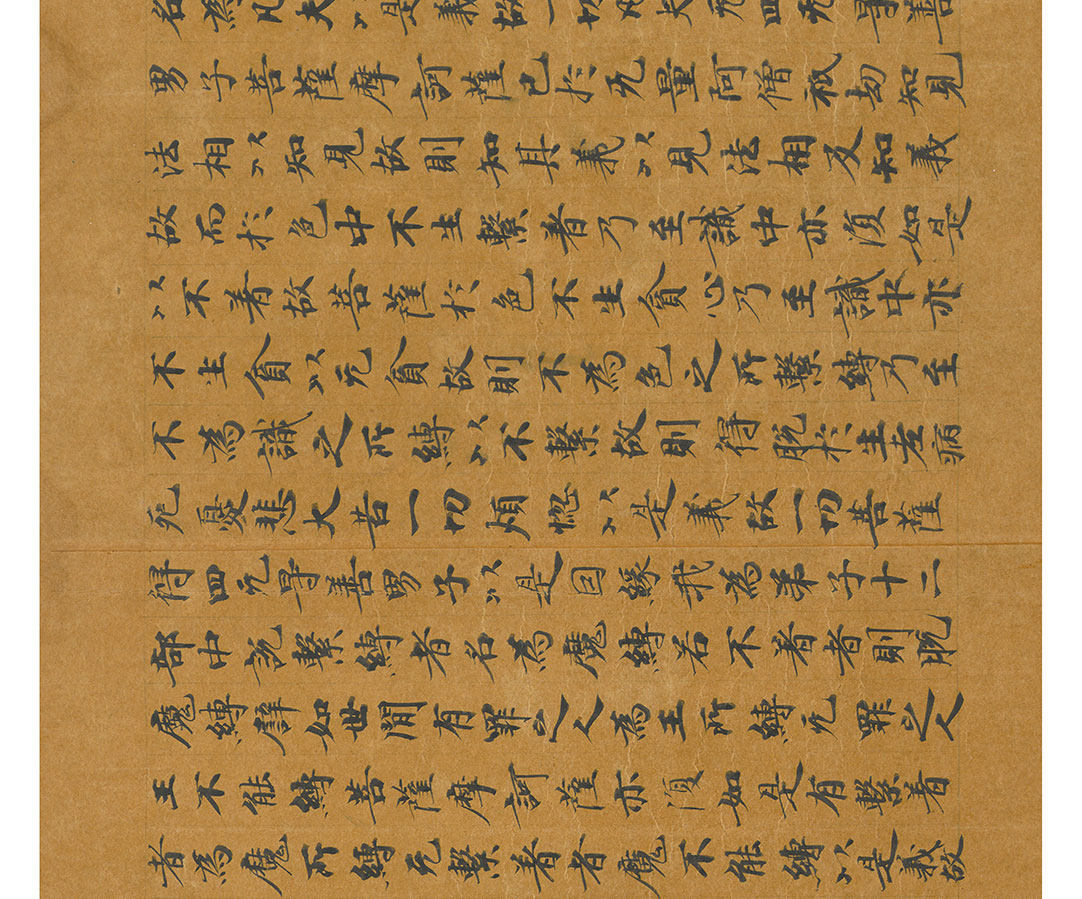 名為凡夫以是義故一切凡夫无四无㝵善
男子菩薩摩訶薩已於无量阿僧祇劫知見
法相以知見故則知其義以見法相及知義
故而於色中不生繫著乃至識中亦復如是
以不著故菩薩於色不生貪心乃至識中亦
不生貪以无貪故則不為色之所繫縛乃至
不為識之所縛以不繫故則得脫於生老病
死憂悲大苦一切煩惚以是義故一切菩薩
得四无㝵善男子以是囙緣我為弟子十二
部中說繫縛者名為魔縛若不著者則脫
魔縛譬如世間有罪之人為王所縛无罪之人
王不能縛菩薩摩訶薩亦復如是有繫著
者為魔所縛无繫著者魔不能縛以是義故